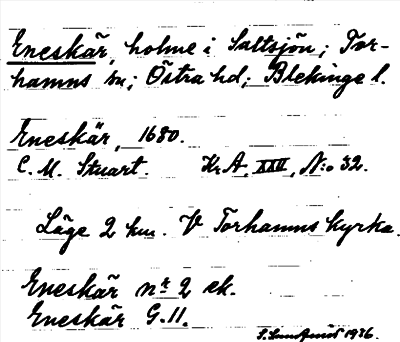 Eneskär, holme i Saltsjön; Tor-
hamns sn; Östra hd; Blekinge l.
Eneskär, 1680.
C. M. Stuart. Kr. A. XXII, N:o 32.
Läge 2 km. V Torhamns kyrka.
Eneskär nr 2 ek.
Eneskär G.11.
1936.